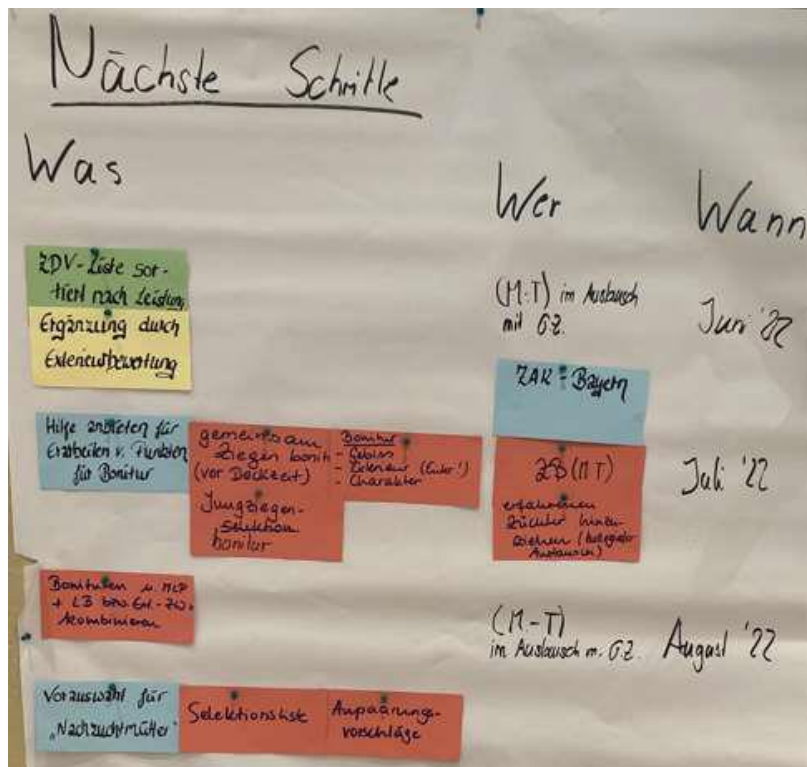 Nächste Schritte
Was
Wer
Wann
ZDV-Liste sor-
tiert nach Leistung
Ergänzung durch
Exterieurbewertung
(M-T) im Austausch
mit G.Z.
Juni '22
ZAR-Bayern
Hilfe anbieten für
Erarbeiten v. Punkten
für Bonitur
gemeinsam
Ziegen bonit.
(vor Deckzeit)
Jungziegen-
selektion
bonitur
Bonitur
- Gebiss
- Exterieur (Euter!)
- Charakter
(MT)
erfahrenen
Züchter hinzu-
ziehen (kollegialer
Austausch)
Juli '22
Bonituren u. MLP
+ LB bzw.
kombinieren
(M-T)
im Austausch m. G.Z.
August '22
Vorauswahl für
„Nachzuchtmütter"
Selektionsliste
Anpaarungs-
vorschläge